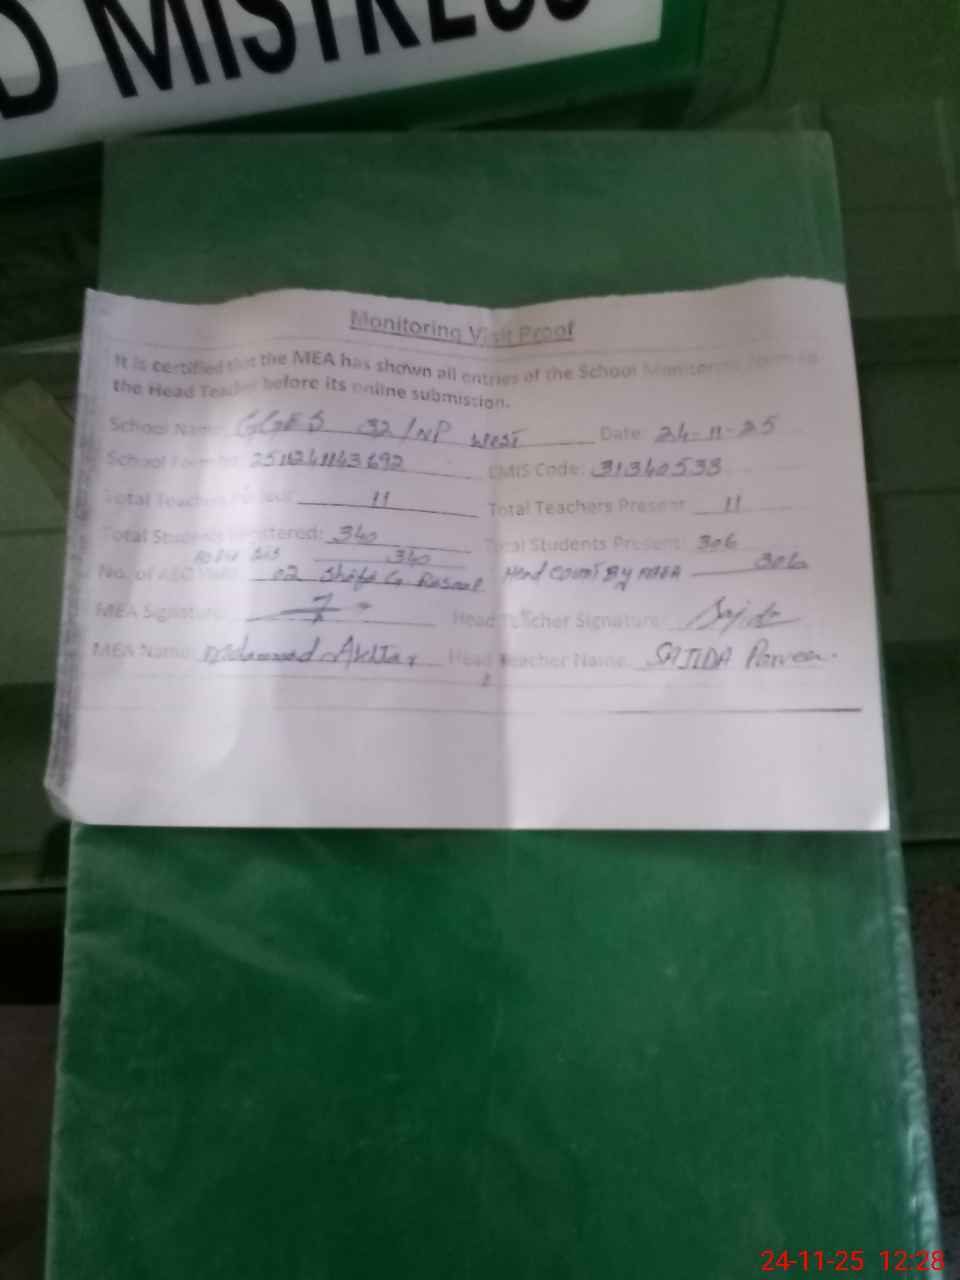 D MISTRESS
Monitoring Visit Proof
It is certified that the MEA has shown all entries of the School Monitoring Form to
the Head Teacher before its online submission.
School Name: GGES 32/NP West Date: 24-11-25
School Form No: EMIS Code: 31340533
Total Teachers 11 Total Teachers Present 11
Total Students Registered: 340 Total Students Present: 306
As Per SIS 340 Head Count By MEA 306
No. of 02
MEA Signature: Head Teacher Signature: Sajida
MEA Name: Akhtar Head Teacher Name: SAJIDA Parveen.
24-11-25 12:28